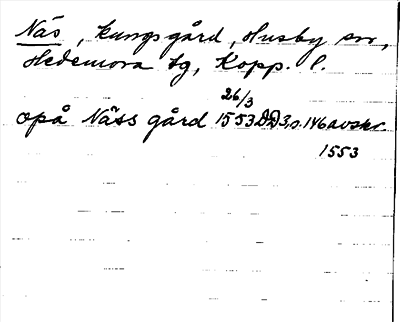 Näs, kungsgård, Husby sn,
Hedemora tg, Kopp. l.
26/3
opå Näss gård 1553 DD3,s.146 avskr.
1553